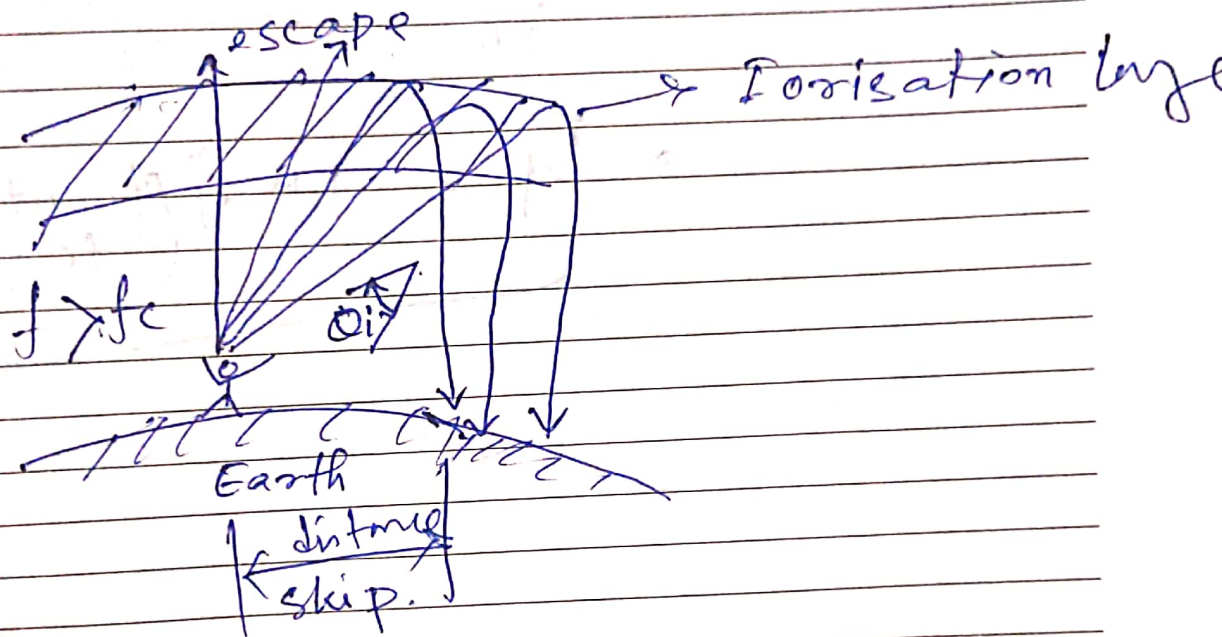 escape
Ionisation laye
f > fc
θi
Earth
distance
skip.